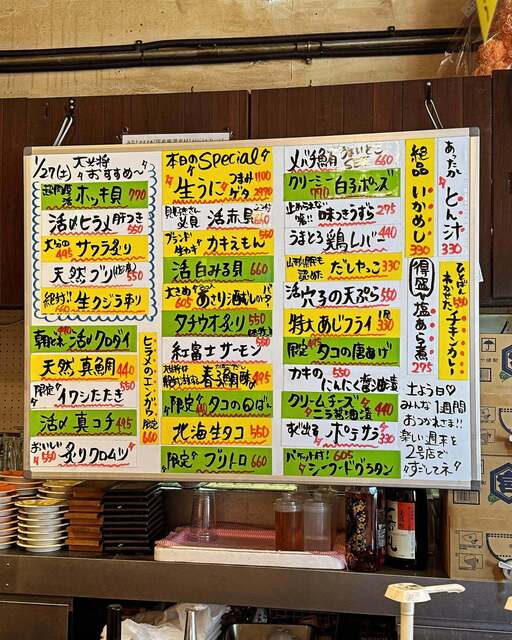 1/27(土) 大将
おすすめ〜
超肉厚活ホッキ貝 770
活〆ヒラメ 肝つき 550
大トロのサワラ炙り 550
天然ブリ 550
絶対!!生クジラ刺り
朝〆 活〆クロダイ 440
天然 真鯛 440
限定 イワシたたき 550
活〆真コチ 495
おいしい 炙りクロムツ 550
ヒラメのエンガワ 限定 660
本日のSpecial
生うに つまみ 1100 ゲタ 2970
活 赤貝 660
ブランド生かき カキえもん
活 白みる貝 660
大きめ あさり酒むしバター 605
タチウオ炙り 550
紅富士サーモン
春子鯛 495
限定 タコの口ばし 440
北海生タコ 550
限定 ブリトロ 660
メバチ鮪 660
クリーミー白子ポン酢 770
止められない 味つきうずら 275
うまとろ 鶏レバー 440
だしやっこ 330
活穴子の天ぷら 550
特大あじフライ 1尾 330
限定 タコの唐あげ 495
カキの 550
にんにく醤油漬
クリームチーズ
ニラ醤油漬 440
すぐ出る ポテサラ 330
バケット付! 605
シーフードグラタン
絶品 いかめし 330
得盛 塩あら煮 275
あったか とん汁 330
ひとばんねかせた ツナチキンカレー 550
土よう日♡
みんな1週間
おつかれさま!!
楽しい週末を
2号店で
すごしてネ